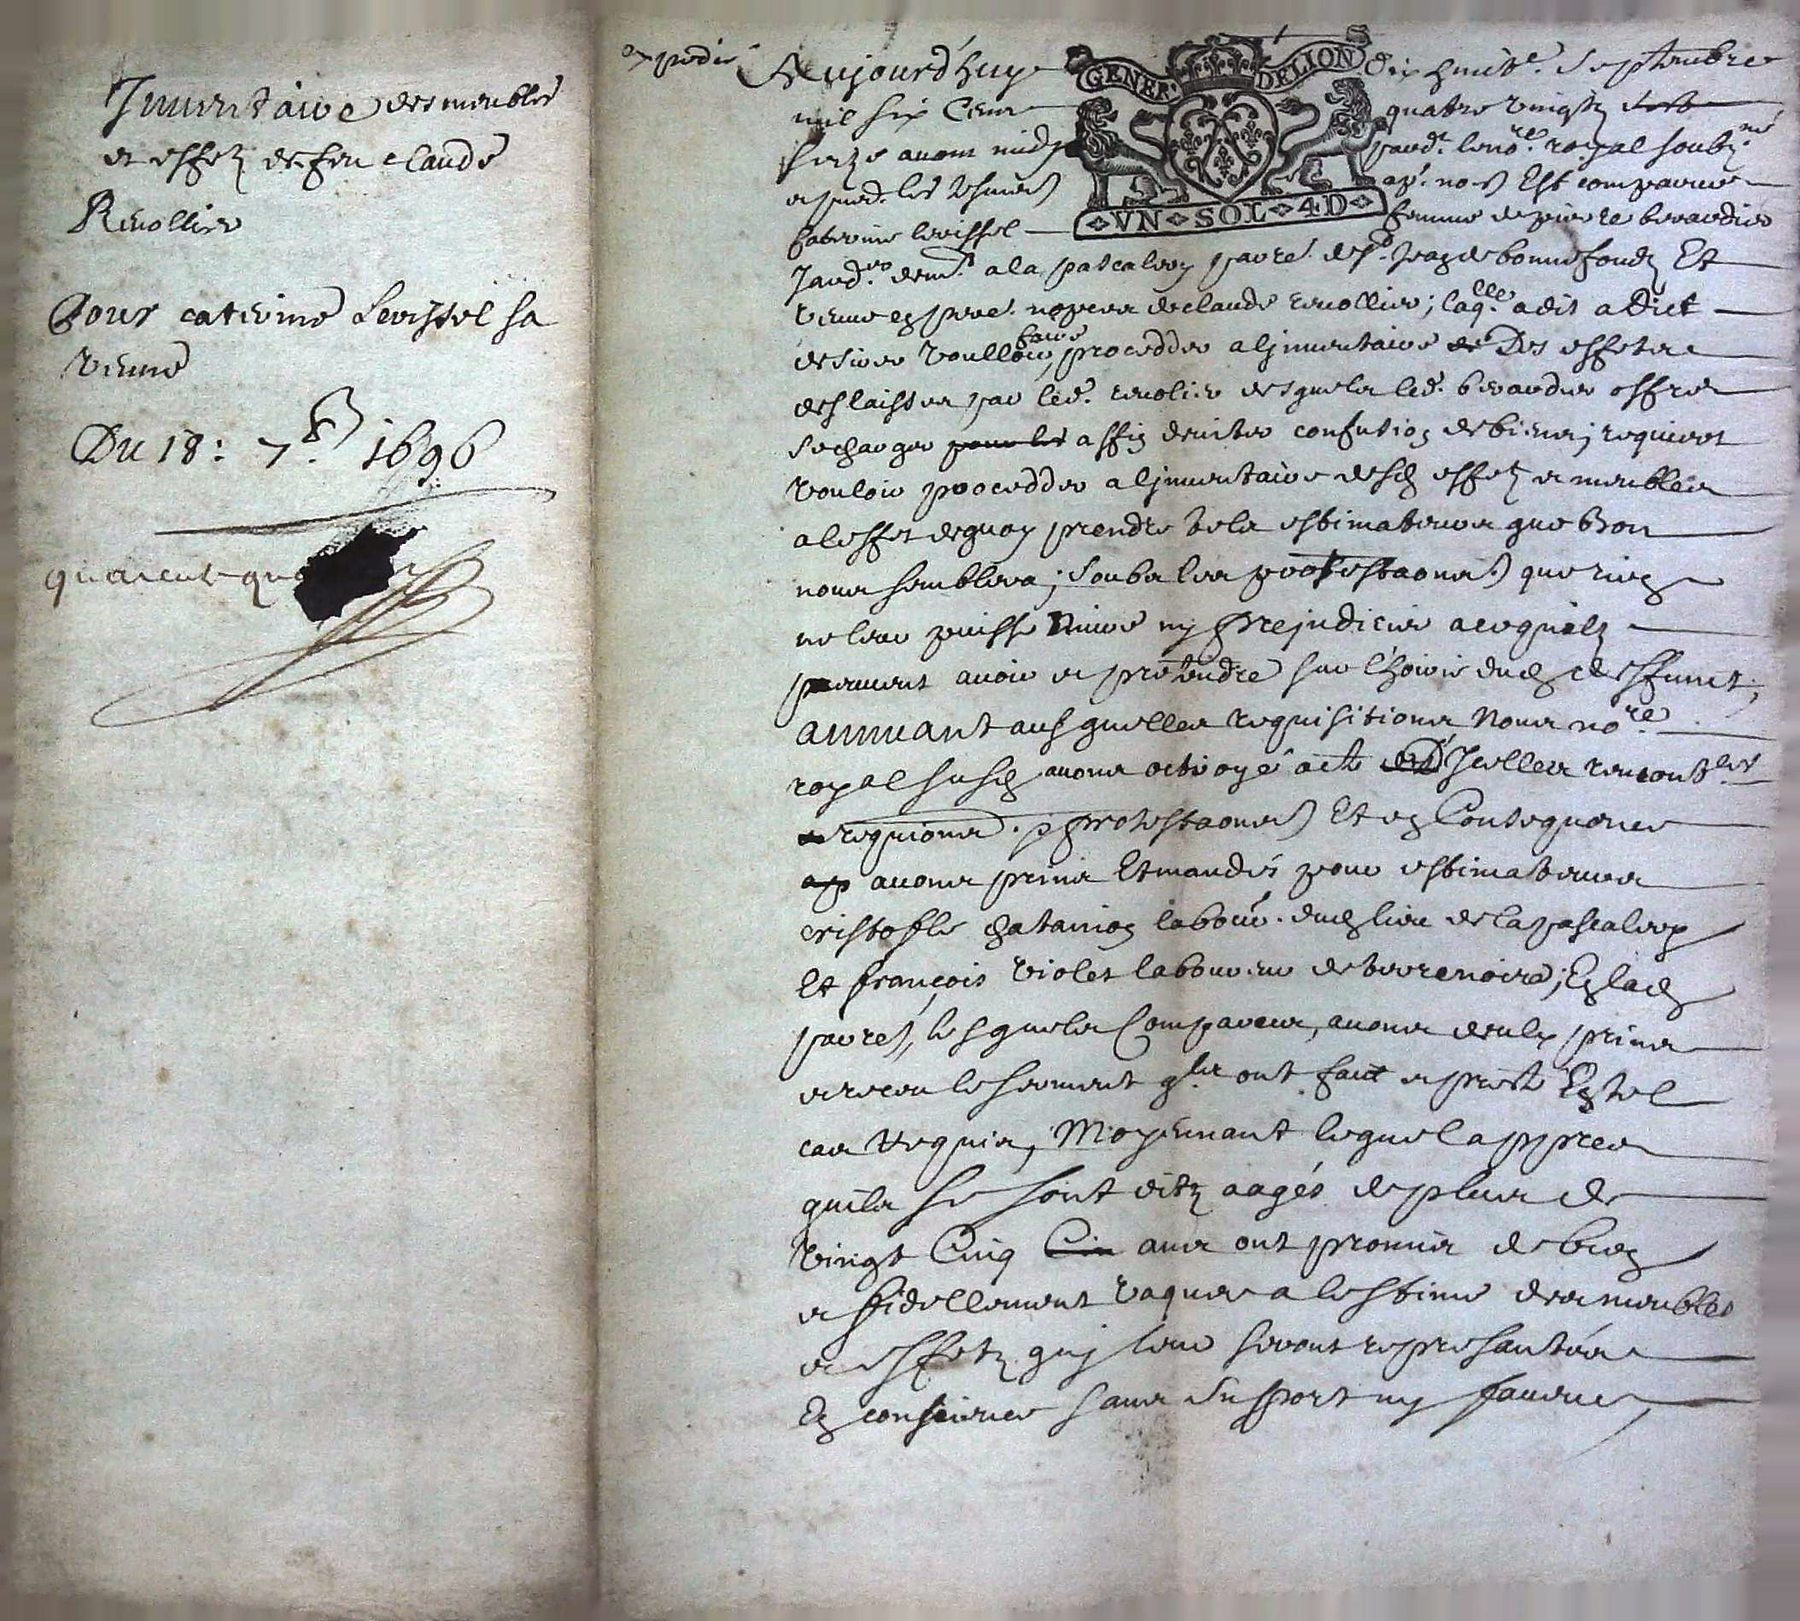 Inventaire des meubles
et effetz de feu Claude
Revollier
Pour caterine Levissel sa
veuve
Du 18: 7b 1696
quarente qua
expedié
Aujourd'huy dix huite. Septembre
mil six Cens quatre vingtz
seize avant midy pard. le no.re royal soubz.né
et pnd. les tesmoins ap. no.s Est comparue
Caterine levissel femme de pierre berardier
demt. a la pascalery parre. de St. Jean de bonnefondz Et
veufve en pre. nopces de claude revollier; laqlle. a dit a dict
desirer voulloir faire, procedder a linventaire de Des effetz
deslaisses par led. revolier desquels led. berardier offre
se charger pour les affin deviter confution de biens; requierent
vouloir procedder a linventaire desd effetz et meubles
a leffet de quoy prendre tels estimateurs que bon
nous semblera; soubz les protestaons que rien
ne leur puisse Nuire ny prejudicier a ce quilz
peuvent avoir et prétendre sur lhoirie dud deffunct;
annuant ausquelles requisitions Nous no.re
royal susd avons octroyé acte de D'Icelles
requions. protestaons Et en Consequence
avons prins Et mandés pour estimateurs
cristofle chatainon labour. dud lieu de la pascalery
Et françois violet laboureur de terrenoire; En lad
parre, lesquels Comparus, avons deulx prins
et receu le serment qlz ont faict et presté En tel
cas requis, Moyennant lequel appres
quils se sont ditz aagés de plus de
vingt Cinq Cin ans ont promis de bien
et fidellement vaquer a lestime des meubles
et effetz quy leur seront represantés
En consience sans support ny faveur,
GENER DELION
VN SOL 4D